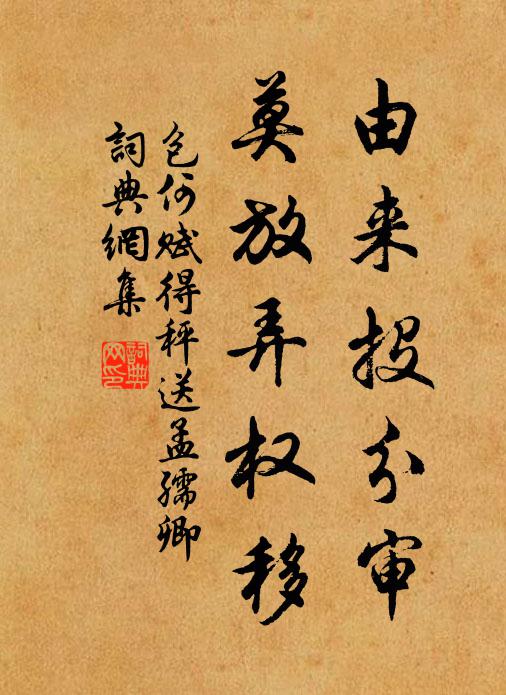 由来投分审
莫放弄权移
包何赋得秤送孟孺卿
詞典網集
詞典網印